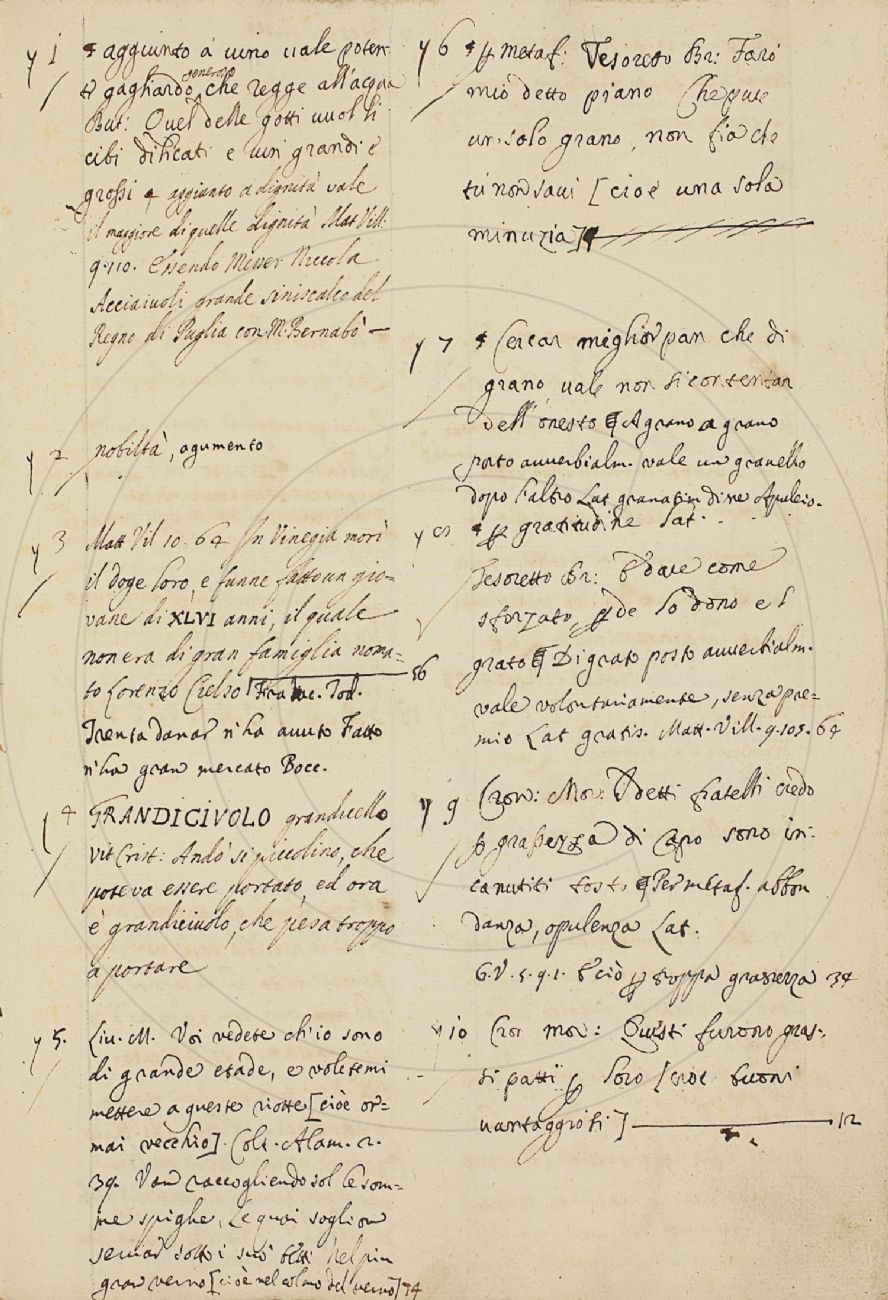 y 1 aggiunto à vino vale poten-
te gagliardo, generoso che regge all'acqua
But: Quel delle gotti vuol li
cibi dilicati e vini grandi e
grossi ¶ aggiunto a dignità vale
il maggiore di quelle dignità Mat Vill.
9. 110. Essendo Messer Niccola
Acciaiuoli grande siniscalco del
Regno di Puglia con M. Bernabò —
y 2 nobiltà, agumento
y 3 Matt Vil 10. 64 In Vinegia morì
il doge loro, e funne fatto un gio-
vane di XLVI anni, il quale
non era di gran famiglia noma-
to Lorenzo Celso 56
Fra Iac. Tod.
Trenta danar n'ha avuto Fatto
n'ha gran mercato Bocc.
4 GRANDICIVOLO grandicello
Vit Crist: Andò si piccolino, che
poteva essere portato, ed ora
è grandiciuolo, che pesa troppo
a portare
y 5. Liv. M. Voi vedete ch'io sono
di grande etade, e voletemi
mettere a queste riotte [cioè or-
mai vecchio]. Colt. Alam. 2.
39. Van raccogliendo sol le som-
me spighe, Le quai soglion
seminar sotto i suoi tetti Nel piu
gran verno [cioè nel colmo del verno] 74
y 6 ¶ p metaf: Tesoretto Br: Farò
mio detto piano Che pure
un solo grano, non fia che
tu non savi [cioè una sola
minuzia]
y 7 ¶ Cercar miglior pan che di
grano vale non si contentar
dell'onesto ¶ A grano a grano
posto avverbialm. vale un granello
dopo l'altro Lat granatim disse Apuleio.
y 8 ¶ p gratitudine Lat.
Tesoretto Br: E dare come
sforzato, p de lo dono e l
grato ¶ Di grato posto avverbialm.
vale volontariamente, senza pre-
mio Lat gratis. Matt. Vill. 9. 105. 64
y 9 Cron: Mor: I detti fratelli credo
p grassezza di capo sono in-
canutiti tosto ¶ Per metaf. abbon
danza, opulenza Lat.
G. V. 5. 9. 1. E ciò p troppa grassezza 34
y 10 Cron mor: Questi furono gras-
si patti p loro [cioè buoni
vantaggiosi] 12